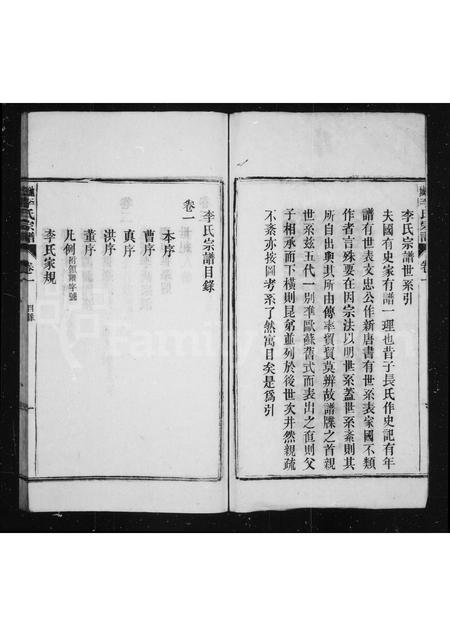 李氏宗譜世系引
夫國有史家有譜一理也昔子長氏作史記有年
譜有世表文忠公作新唐書有世系表家國不類
作者言殊要在因宗法以明世系蓋世系紊則其
所自出與其所由傳率貿貿莫辨故譜牒之首親
世系茲五代一別準歐蘇舊式而表出之直則父
子相承而下橫則昆弟並列於後世次井然親疏
不紊亦按圖考系了然寓目矣是為引
李氏宗譜
卷一
李氏宗譜目錄
卷一
本序
曹序
真序
洪序
董序
凡例附領雜字號
李氏家規
李氏宗譜
卷一
目錄